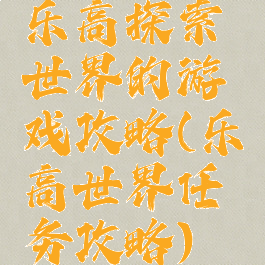 乐高探索
世界的游
戏攻略(乐
高世界任
务攻略)